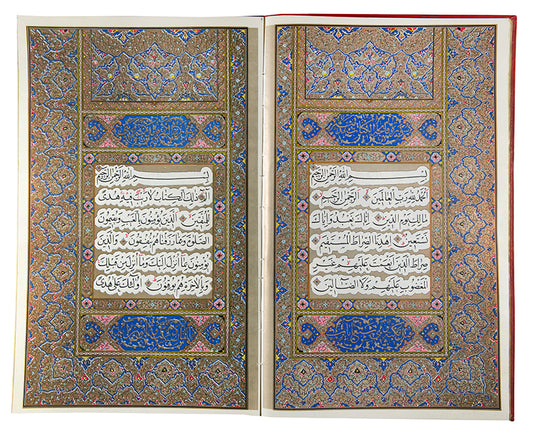 بِسْمِ اللهِ الرَّحْمٰنِ الرَّحِيمِ
اَلْحَمْدُ لِلّٰهِ رَبِّ الْعَالَمِينَ الرَّحْمٰنِ الرَّحِيمِ
مَالِكِ يَوْمِ الدِّينِ اِيَّاكَ نَعْبُدُ وَاِيَّاكَ
نَسْتَعِينُ اِهْدِنَا الصِّرَاطَ الْمُسْتَقِيمَ
صِرَاطَ الَّذِينَ اَنْعَمْتَ عَلَيْهِمْ غَيْرِ
الْمَغْضُوبِ عَلَيْهِمْ وَلَا الضَّالِّينَ
بِسْمِ اللهِ الرَّحْمٰنِ الرَّحِيمِ
الم ذٰلِكَ الْكِتَابُ لَا رَيْبَ فِيهِ هُدًى
لِلْمُتَّقِينَ الَّذِينَ يُؤْمِنُونَ بِالْغَيْبِ وَيُقِيمُونَ
الصَّلٰوةَ وَمِمَّا رَزَقْنَاهُمْ يُنْفِقُونَ وَالَّذِينَ
يُؤْمِنُونَ بِمَا اُنْزِلَ اِلَيْكَ وَمَا اُنْزِلَ مِنْ قَبْلِكَ
وَبِالْاٰخِرَةِ هُمْ يُوقِنُونَ اُولٰئِكَ عَلٰى هُدًى